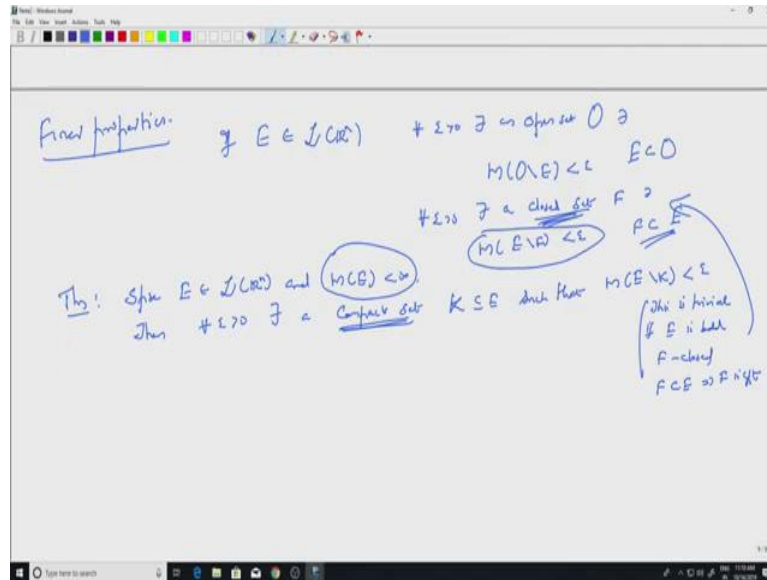 Note1 - Windows Journal
File Edit View Insert Actions Tools Help
Finer properties. If E ∈ L(ℝⁿ) ∀ ε>0 ∃ an open set O ∋
E ⊂ O
m(O\E) < ε
∀ ε>0 ∃ a closed set F ∋
F ⊂ E
m(E\F) < ε
Thm: Spse E ∈ L(ℝⁿ) and m(E) < ∞.
Then ∀ ε>0 ∃ a compact set K ⊆ E such that m(E\K) < ε
This is trivial
if E is bdd
F-closed
F ⊂ E ⇒ F is cpt
Type here to search